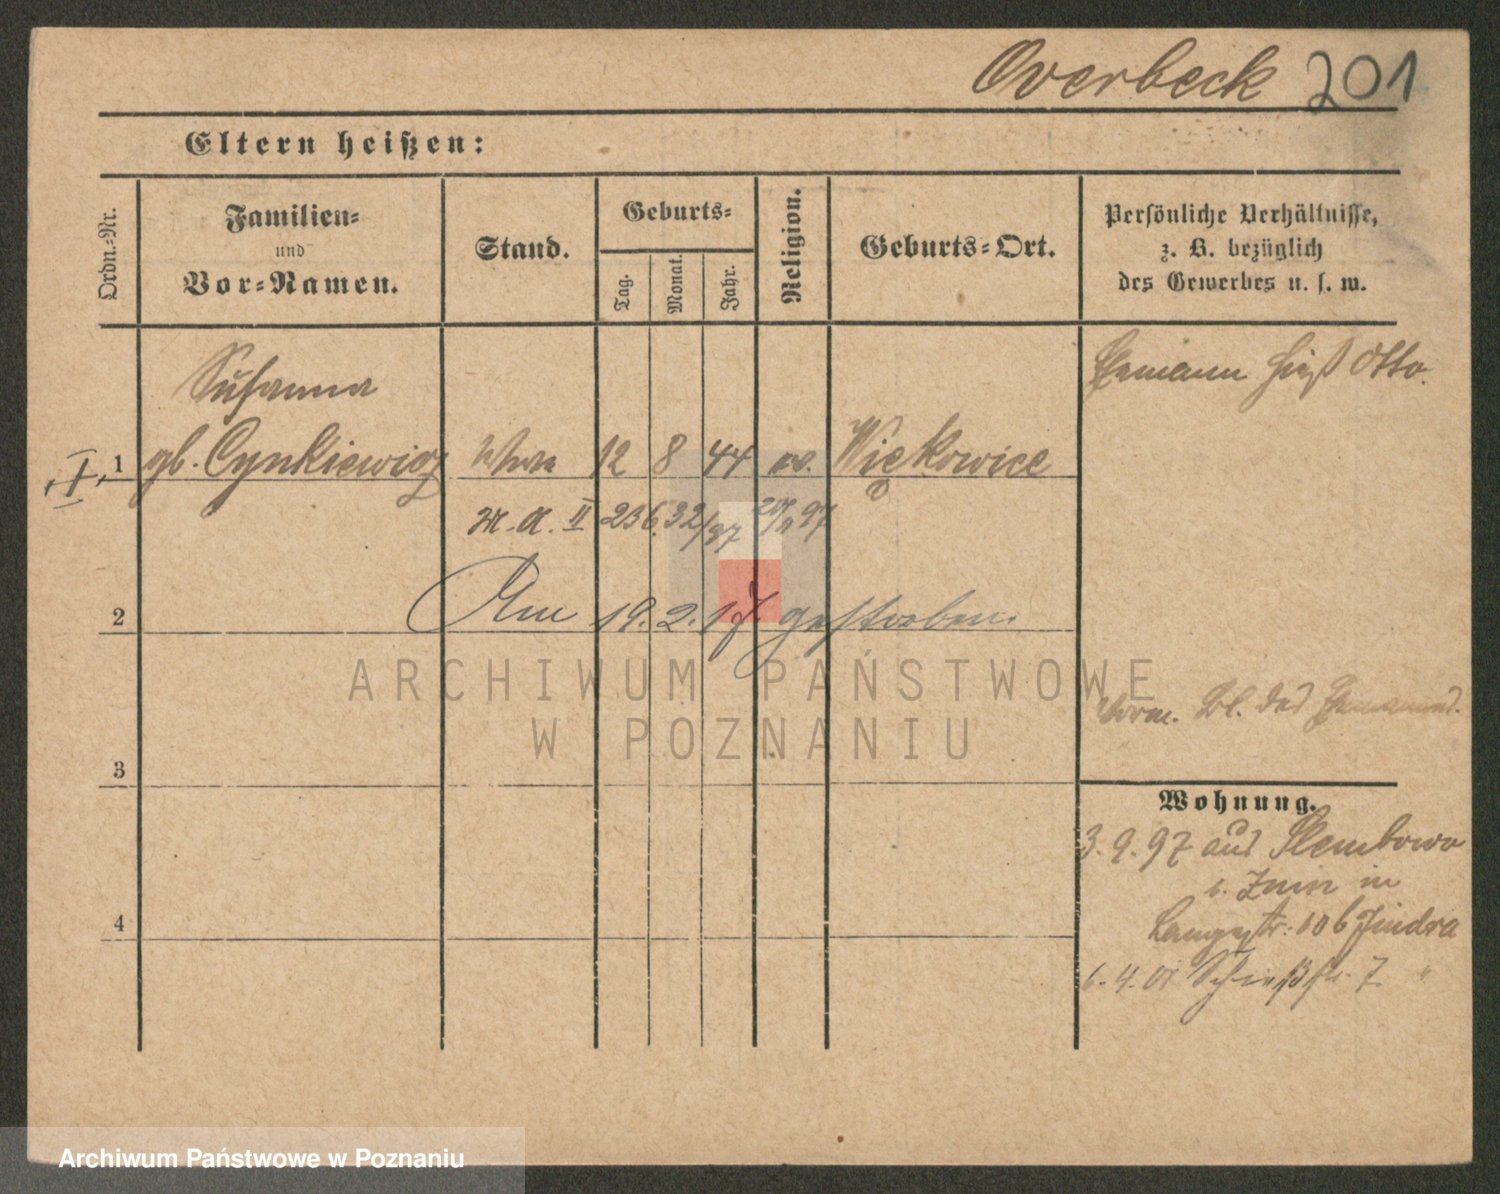 Overbeck 201
Eltern heißen:
Ordn.-Nr.
Familien-
und
Vor-Namen.
Stand.
Geburts-
Tag.
Monat.
Jahr.
Religion.
Geburts-Ort.
Persönliche Verhältnisse,
z. B. bezüglich
des Gewerbes u. s. w.
Susanna
Ehemann hieß Otto.
I 1 gb. Cynkiewicz Wwe 12 8 44 ev. Więckowice
M. A. II 236.32/97 97
2 Am 19. 2. 17 gestorben.
ARCHIWUM PAŃSTWOWE
W POZNANIU
Vorm. Bl. des Ehemannes.
3
Wohnung.
3. 9. 97 aus Slembowo
b. Znin in
Langestr. 10 b Jindra
4
6. 4. 01 Schießstr. 7 "
Archiwum Państwowe w Poznaniu